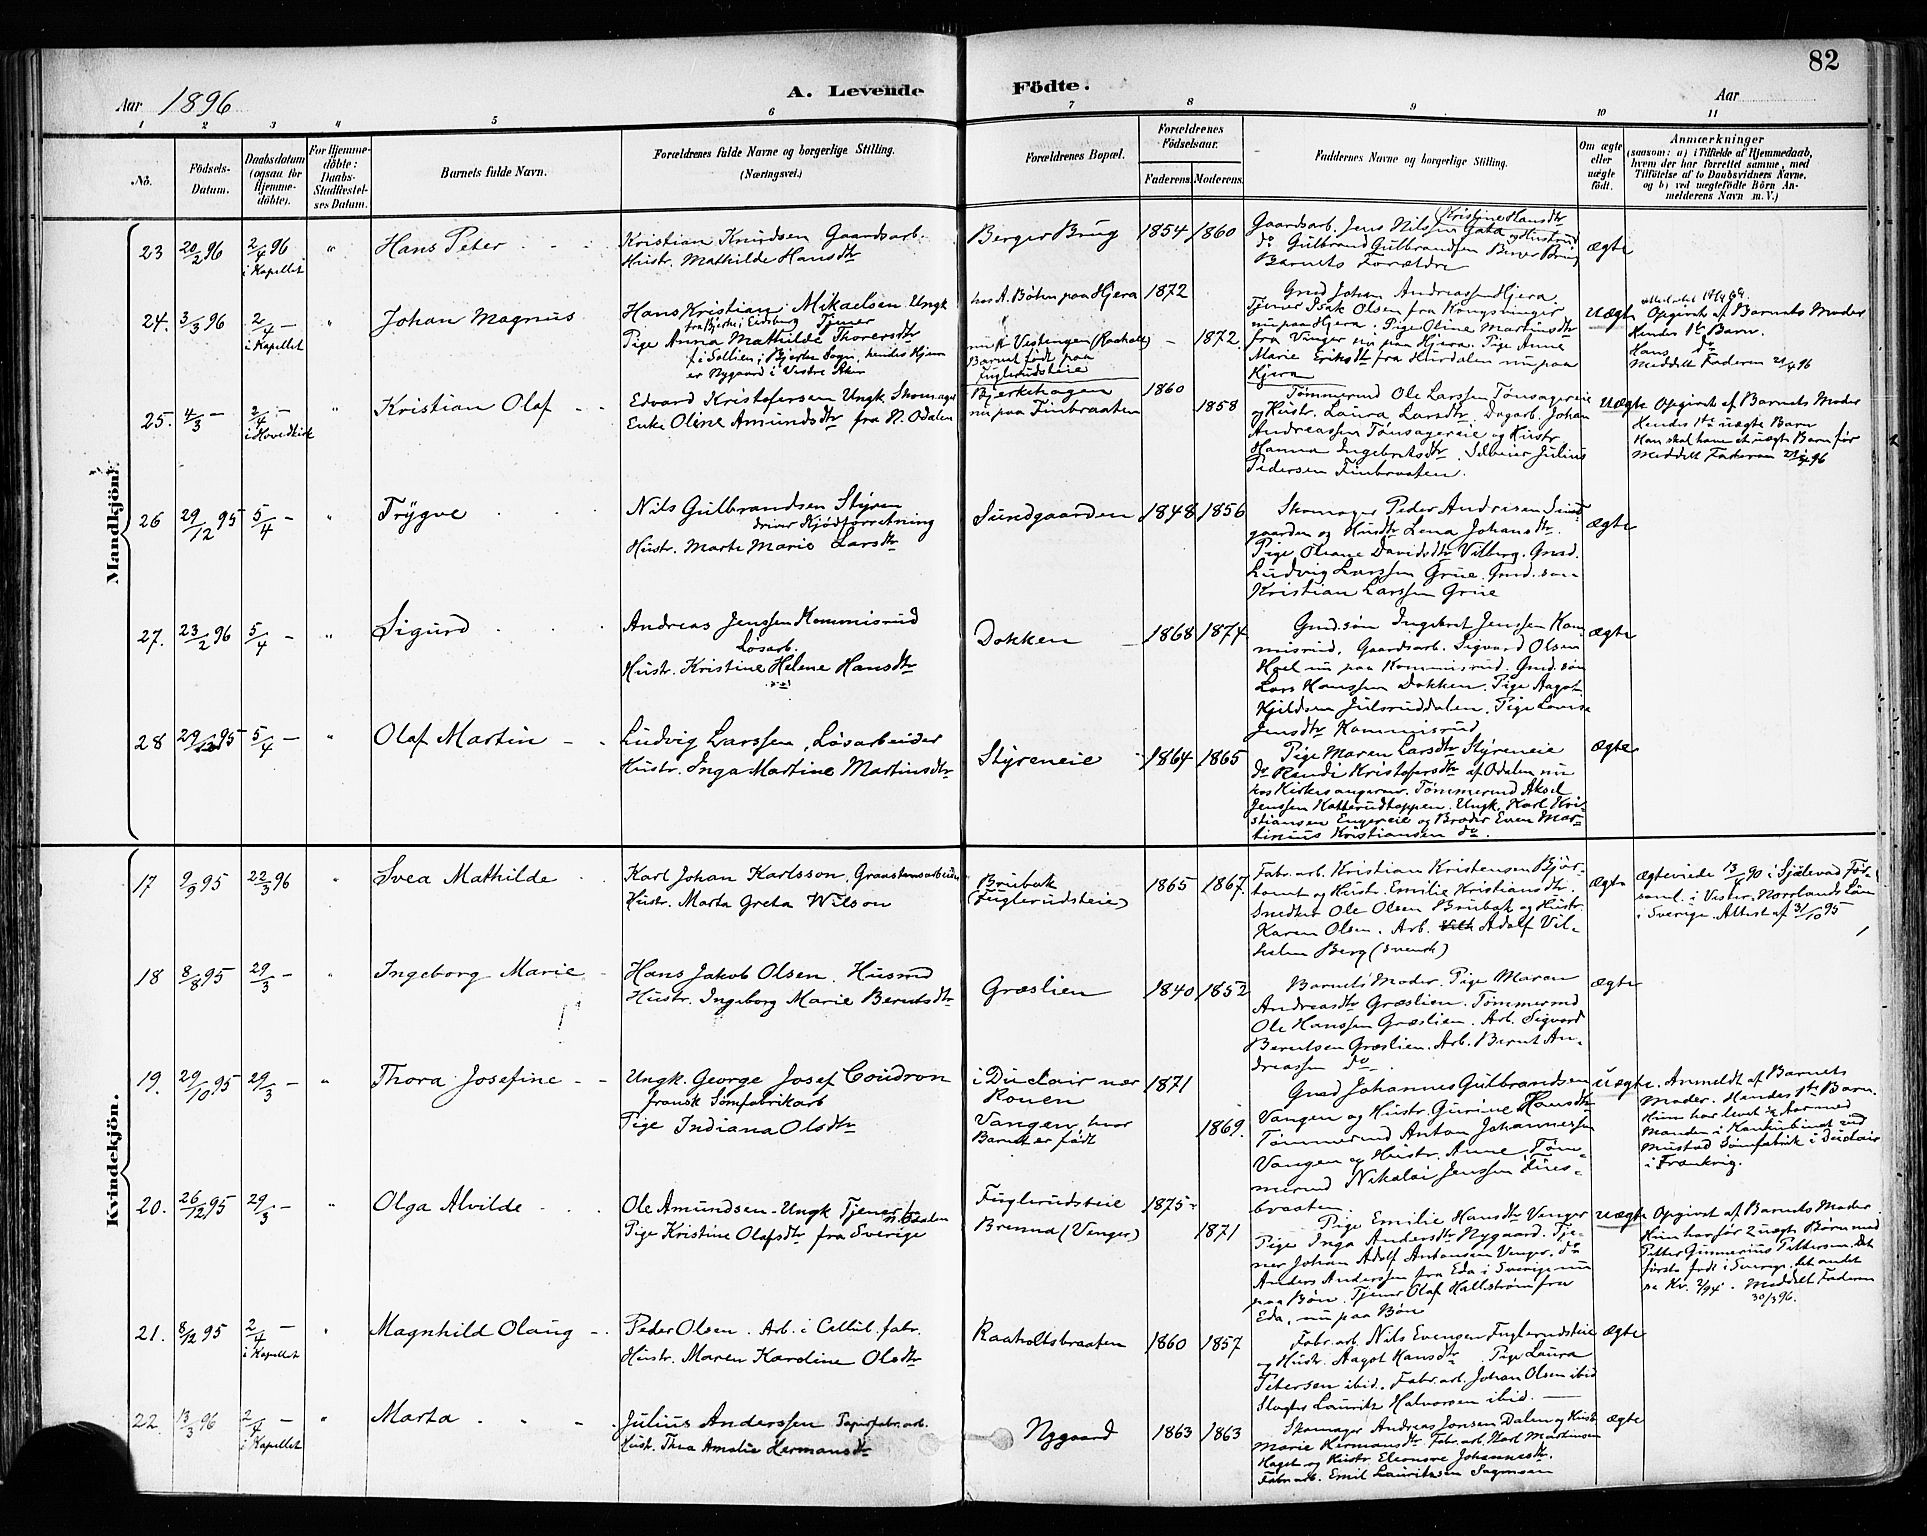 82
Aar 1896
A. Levende Födte.
Aar
1 2 3 4 5 6 7 8 9 10 11
No.
Födsels-Datum.
Daabsdatum (ogsaa for Hjemme-döbte).
For Hjemme-döbte: Daabs-Stadfæstel-ses Datum.
Barnets fulde Navn.
Forældrenes fulde Navne og borgerlige Stilling. (Næringsvei.)
Forældrenes Bopæl.
Forældrenes Födselsaar.
Faderens. Moderens.
Faddernes Navne og borgerlige Stilling.
Om ægte eller uægte födt.
Anmærkninger
(saasom: a) i Tilfælde af Hjemmedaab, hvem der har forrettet samme, med Tilföielse af to Daabsvidners Navne, og b) ved uegtefödte Börn An-melderens Navn m. V.)
Mandkjön.
23 20/2 96 2/4 96 i Kapellet " Hans Peter
Kristian Knudsen Gaardsarb.
Hustr. Mathilde Hansdtr
Berger Brug 1854 1860
Gaardsarb. Jens Nilssen Gata og Hustrud Kristine Hansdtr
do Gulbrand Gulbrandsen Berger Brug
Barnets Forældre
ægte
24. 3/3 96 2/4 — i Kapellet " Johan Magnus
Hans Kristian Mikaelsen Ungk.
Tjener
Pige Anna Mathilde Thorersdtr
er Nygaard i Vestre Aker
hos A. Bøhn paa Hjera 1872
Barnet født paa
Fuglerudseie
1872
Gmd Johan Andreassen Hjera
Tjener Isak Olsen fra Kongsvinger
nu paa Hjera. Pige Oline Martinsdtr
fra Vinger nu paa Hjera. Pige Anne
Marie Eriksdtr fra Hurdalen nu paa
Hjera
uægte
Opgivet af Barnets Moder
Hendes 1te Barn.
Hans do
Meddelt Faderen 21/4 96
25. 4/3 — 2/4 — i Hovedkirk " Kristian Olaf
Edvard Kristofersen Ungk Skomager
Enke Oline Amundsdtr fra N. Odalen
Bjerkehagen
nu paa Finbraaten
1860 1858
Tømmermd Ole Larssen Tønsagereie
og Hustr. Laura Larsdtr, Dagarb. Johan
Andreassen Tønsagereie og Hustr
Hanna Ingebretsdtr. Julius
Pedersen Finbraaten.
uægte
Opgivet af Barnets Moder
Hendes 1te uægte Barn
Han skal have et uægte Barn før
Meddelt Faderen 21/4 96
26 29/12 95 5/4 — " Trygve
Nils Gulbrandsen Styren
driver Kjødforretning
Hustr. Marte Marie Larsdtr
Sundgaarden 1848 1856
Skomager Peder Andersen Sund-
gaarden og Hustr Lena Johansdtr.
Pige Oleane Davidsdtr Vilberg. Gmd.
Ludvig Larssen Grue. Gmd. søn
Kristian Larssen Grue
ægte
27. 23/2 96 5/4 — " Sigurd
Andreas Jenssen Kommisrud
Løsarb.
Hustr. Kristine Helene Hansdtr
Dokken 1868 1874
Gmd. søn Ingebret Jenssen Kom-
misrud, Gaardsarb. Sigvard Olsen
Hoel nu paa Kommisrud. Gmd. søn
Lars Hanssen Dokken. Pige Aagot
Kjildsen Julsruddalen. Pige Lovise
Jensdtr Kommisrud
ægte
28 29/12 95 5/4 — " Olaf Martin
Ludvig Larssen, Løsarbeider
Hustr. Inga Martine Martinsdtr
Styreneie 1864 1865
Pige Maren Larsdtr Styreneie
do Randi Kristofersdtr af Odalen nu
hos Kirkesangeren. Tømmermd Aksel
Jenssen Katterudtoppen. Ungk. Karl Kri-
stiansen Engereie og Broder Even Mar-
tinius Kristiansen do.
ægte
Kvindekjön.
17 9/9 95 22/3 96 Svea Mathilde
Karl Johan Karlsson, Graastensarbeider
Hustr. Marta Greta Wilson
Brubak
(Fuglerudseie)
1865 1867.
Fabr. arb. Kristian Kristensen Bjør-
tomt og Hustr. Emilie Kristiansdtr.
Snedker Ole Olsen Brubak og Hustr.
Karen Olsen. Arb. Adolf Vil-
helm Berg (svensk)
ægte
Ægteviede 13/4 90 i Själevad För-
saml. i Vester-Norrlands Län
i Sverige. Attest af 31/10 95
18 8/8 95 29/3 — " Ingeborg Marie
Hans Jakob Olsen. Husmd
Hustr. Ingeborg Marie Berntsdtr
Græslien 1840 1852
Barnets Moder. Pige Maren
Andreasdtr Græslien. Tømmermd
Ole Hanssen Græslien. Arb. Sigvard
Berntsen Græslien. Arb. Bernt An-
dreassen do.
ægte
19. 29/10 95 29/3 — " Thora Josefine
Ungk. George Josef Coudron
fransk Sømfabrikarb
Pige Indiana Olsdtr
i Duclair nær
Rouen
Vangen, hvor
Barnet er født
1871 1869.
Gmd Johannes Gulbrandsen
Vangen og Hustr. Gurine Hansdtr
Tømmermd Anton Johannessen
Vangen og Hustr. Anne. Tøm-
mermd Nikolai Jenssen Fines-
braaten.
uægte.
Anmeldt af Barnets
Moder. Hendes 1te Barn.
Hun har levet Aar med
Manden i Konkubinat ved
Mustad Sømfabrik i Duclair
i Frankrig.
20. 26/12 95 29/3 — " Olga Alvilde
Ole Amundsen - Ungk Tjener fra N. Odalen
Pige Kristine Olafsdtr fra Sverige
Fuglerudseie
Brenna (Venger)
1875 1871
Pige Emilie Hansdtr Venger
Pige Inga Andersdtr Nygaard. Tje-
ner Johan Adolf Antonsen Venger. do
Anders Andersen fra Eda i Sverige nu
paa Bøn. Tjener Olaf Hallstrøm fra
Eda, nu paa Bøn
uægte
Opgivet af Barnets Moder.
Hun har før 2 uægte Børn med
Petter Gunnerius Pettersen. Det
første født i Sverige, det andet
se Kv. 2/94. Meddelt Faderen
30/3 96.
21. 8/12 95 2/4 — i Kapellet " Magnhild Olaug
Peder Olsen. Arb. i Cellul. fabr.
Hustr. Maren Karoline Olsdtr
Raaholtsbraaten 1860 1857
Fabr. arb Nils Evensen Fuglerudseie
og Hustr. Aagot Hansdtr Pige Laura
Petersen ibid. Fabr. arb. Johan Olsen ibid
Slagter Lauritz Halvorsen ibid.
ægte
22 13/3 96 2/4 — i Kapellet " Marta
Julius Anderssen Papirfabr. arb.
Hustr. Thea Amalie Hermansdtr
Nygaard 1863 1863
Skomager Andreas Jonsen Dalen og Hustr
Marie Hermansdtr. Fabr. arb. Karl Martinsen
Haget og Hustr. Eleonore Johannesdtr.
Fabr. arb. Emil Lauritzsen Sagmoen
ægte